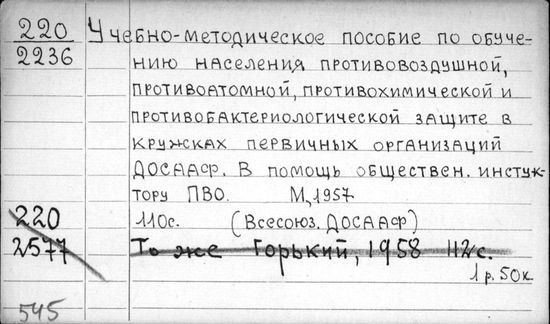 220
2236
Учебно-методическое пособие по обуче-
нию населения противовоздушной,
противоатомной, противохимической и
противобактериологической защите в
кружках первичных организаций
ДОСААФ. В помощь обществен. инстук-
тору ПВО. М, 1957
220
110с. (Всесоюз. ДОСААФ)
2577
То же Горький, 1958 112 с.
1 р. 50к
545